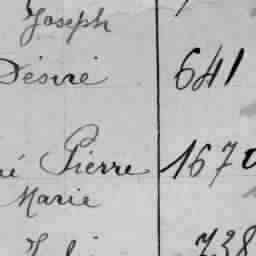 Joseph
Désiré 641
né Pierre 1670
Marie
738